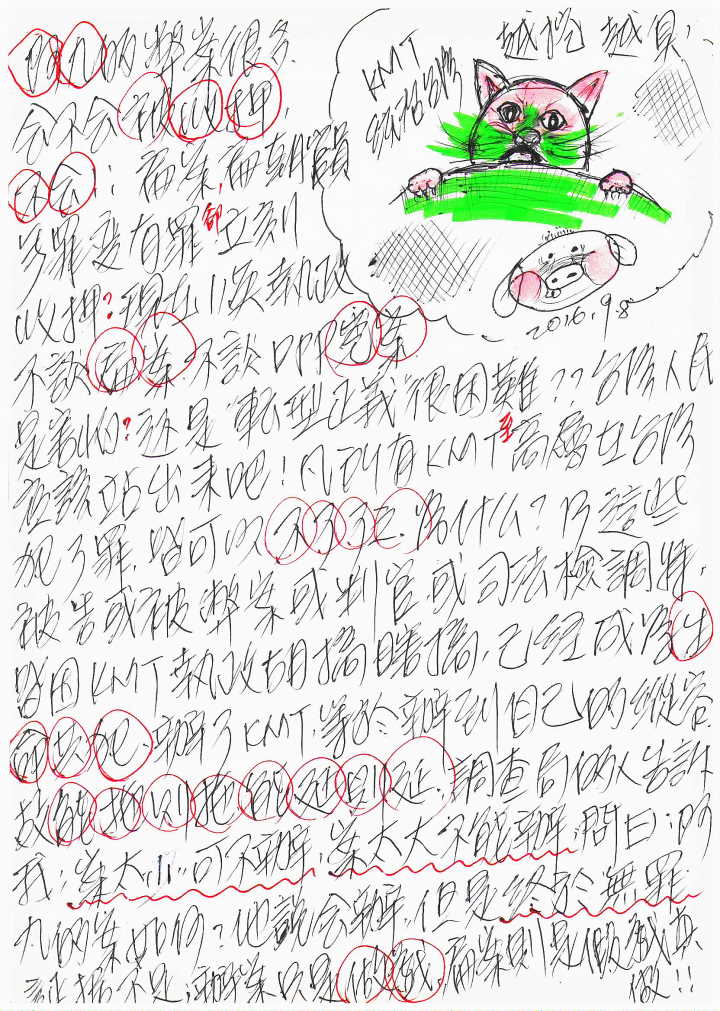 阿九的弊案很多.
會不會被收押,
不會; 扁案,扁朝
罪變有罪卻立刻
收押?現在川淚執政
不談扁案.不談
是 的?還是轉型正義很困難??台灣人民
應該站出來吧!凡所有KMT至高層在台灣
犯了罪.皆可以不了了之.為什么?因這些
被告或被弊案或判官或司法檢調特.
皆因KMT執政胡搞瞎搞.已經成為生
命共犯.辦了KMT.等於辦到自己的縱容
故能拖則拖能延則延.調查局的人告訴
我;案太小可不辦.案太大不能辦.問曰;阿
九的案如何?他說會辦.但是終於無罪
證據不足;辦案只是做戲.扁案則是假戲真
做!!
越挖越臭;
KMT
2016.9.8